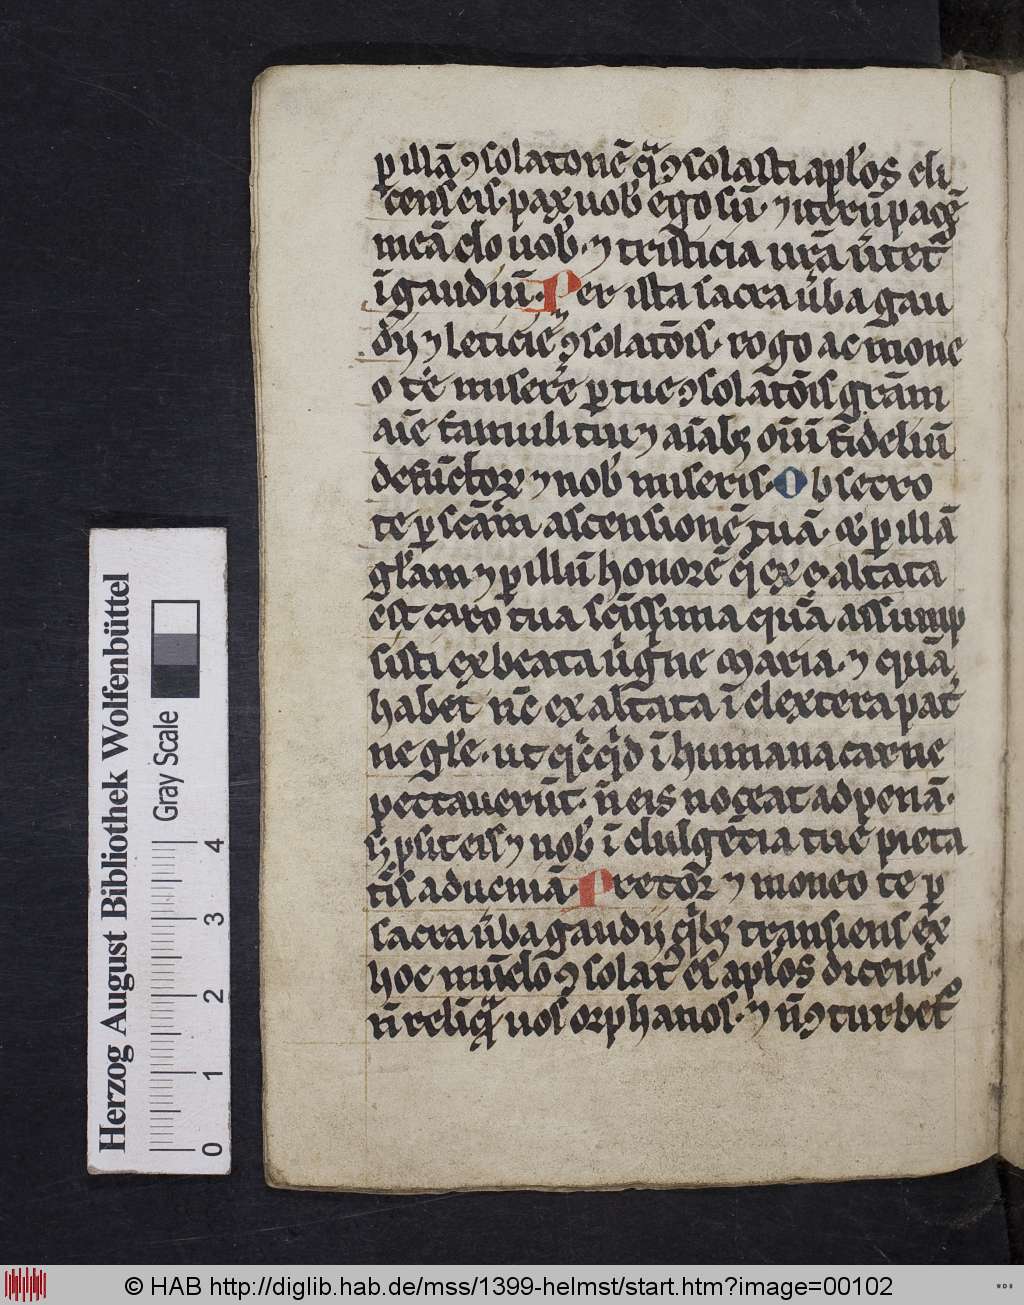 ꝑ illā ꝯsolatonē qͣ ꝯsolasti apl̓os di
cens eis· pax uob̓ ego sū· ⁊ iterū pacē
meā do uob̓· ⁊ tristicia ur̄a u̓tet̄
ī gaudiū· Per ista sacra u̓ba gau
dij ⁊ leticie ꝯsolatōis· rogo ac mone
o te miserēre ꝑ tue ꝯsolatōis grām
aīe famuli tui ⁊ aīabꝫ oīū fideliū
defūctoꝝ ⁊ nob̓ miseris· Obsecro
te ꝑ scām ascensionē tuā· & ꝑ illā
gl̓am ⁊ ꝑ illū honorē q̄ ex exaltata
est caro tua scīssima quā assump
sisti ex beata u̓gine maria· ⁊ quā
habet nc̄ exaltata ī dextera pat̓
ne gl̓e· ut qͥcqͥd ī humana carne
peccauerūt· n̄ eis noceat ad penā·
sꝫ ꝓsit eis ⁊ nob̓ ī dulgētia tue pieta
tis ad ueniā· Precor ⁊ moneo te ꝑ
sacra u̓ba gaudij qͥbꝫ transiens ex
hoc mūdo ꝯsolat̓ es apl̓os dicens·
n̄ relīquā uos orphanos· ⁊ n̄ ꝯturbet̓
Herzog August Bibliothek Wolfenbüttel
Gray Scale
0 1 2 3 4
© HAB http://diglib.hab.de/mss/1399-helmst/start.htm?image=00102